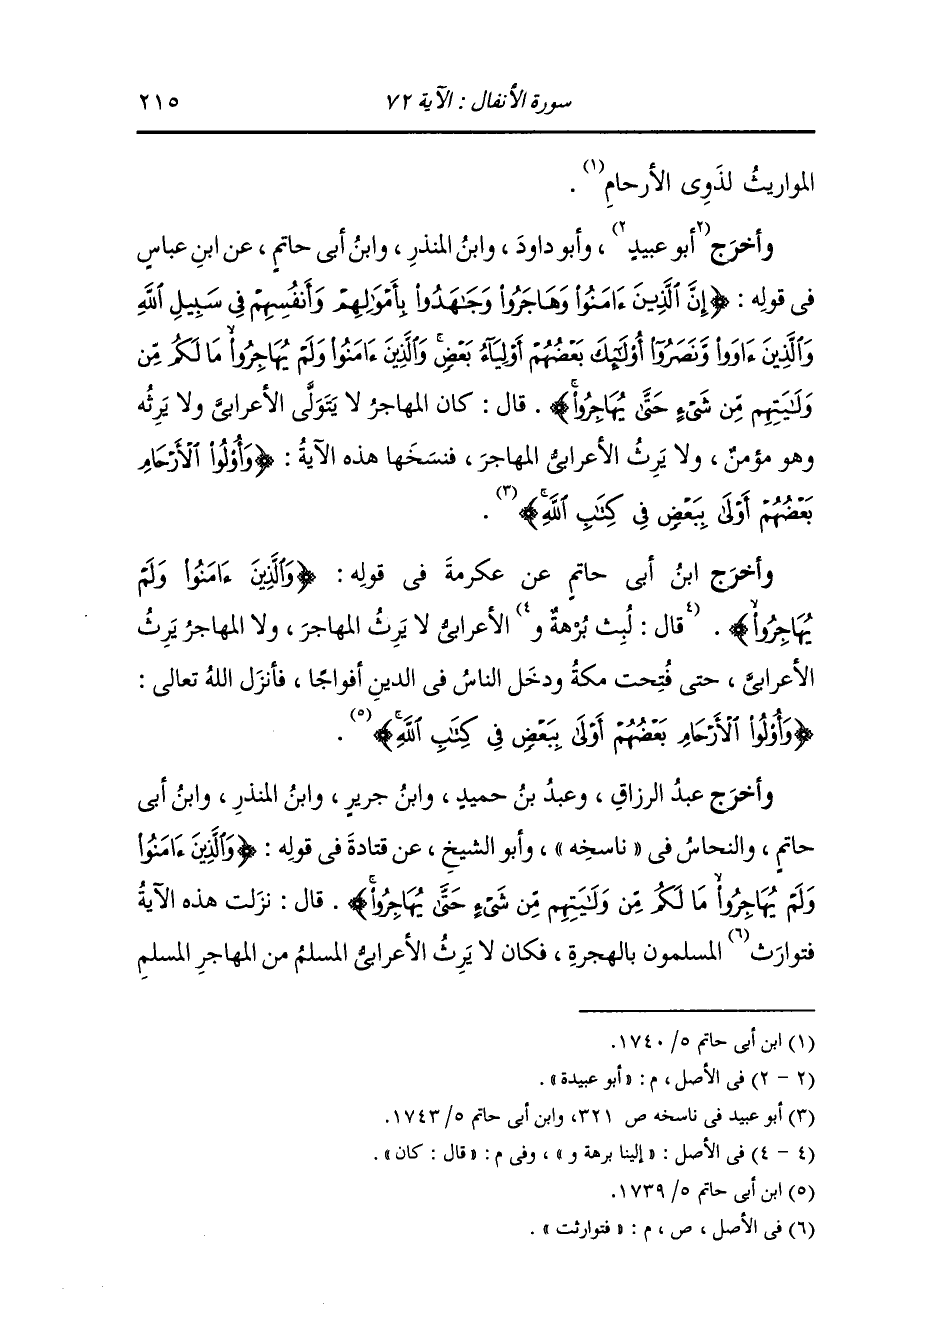 سورة الأنفال : الآية ٧٢ ٢١٥
المواريثُ لذَوِى الأرحامِ(١) .
وأخرَج (٢أبو عبيدٍ٢) ، وأبو داودَ ، وابنُ المنذرِ ، وابنُ أبى حاتمٍ ، عن ابنِ عباسٍ
فى قولِه : ﴿إِنَّ ٱلَّذِينَ ءَامَنُوا۟ وَهَاجَرُوا۟ وَجَـٰهَدُوا۟ بِأَمْوَٰلِهِمْ وَأَنفُسِهِمْ فِى سَبِيلِ ٱللَّهِ
وَٱلَّذِينَ ءَاوَوا۟ وَّنَصَرُوٓا۟ أُو۟لَـٰٓئِكَ بَعْضُهُمْ أَوْلِيَآءُ بَعْضٍۚ وَٱلَّذِينَ ءَامَنُوا۟ وَلَمْ يُهَاجِرُوا۟ مَا لَكُم مِّن
وَلَـٰيَتِهِم مِّن شَىْءٍ حَتَّىٰ يُهَاجِرُوا۟ۚ﴾ . قال : كان المهاجرُ لا يَتَوَلَّى الأعرابىَّ ولا يَرِثُه
وهو مؤمنٌ ، ولا يَرِثُ الأعرابىُّ المهاجرَ ، فنسَخَها هذه الآيةُ : ﴿وَأُو۟لُوا۟ ٱلْأَرْحَامِ
بَعْضُهُمْ أَوْلَىٰ بِبَعْضٍ فِى كِتَـٰبِ ٱللَّهِۚ﴾(٣) .
وأخرَج ابنُ أبى حاتمٍ عن عكرمةَ فى قولِه : ﴿وَٱلَّذِينَ ءَامَنُوا۟ وَلَمْ
يُهَاجِرُوا۟﴾ . (٤قال : لُبِث بُرْهةٌ و٤) الأعرابىُّ لا يَرِثُ المهاجرَ ، ولا المهاجرُ يَرِثُ
الأعرابىَّ ، حتى فُتِحت مكةُ ودخَل الناسُ فى الدينِ أفواجًا ، فأنزَل اللهُ تعالى :
﴿وَأُو۟لُوا۟ ٱلْأَرْحَامِ بَعْضُهُمْ أَوْلَىٰ بِبَعْضٍ فِى كِتَـٰبِ ٱللَّهِۚ﴾(٥) .
وأخرَج عبدُ الرزاقِ ، وعبدُ بنُ حميدٍ ، وابنُ جريرٍ ، وابنُ المنذرِ ، وابنُ أبى
حاتمٍ ، والنحاسُ فى « ناسخِه » ، وأبو الشيخِ ، عن قتادةَ فى قولِه : ﴿وَٱلَّذِينَ ءَامَنُوا۟
وَلَمْ يُهَاجِرُوا۟ مَا لَكُم مِّن وَلَـٰيَتِهِم مِّن شَىْءٍ حَتَّىٰ يُهَاجِرُوا۟ۚ﴾ . قال : نزَلت هذه الآيةُ
فتوارَث(٦) المسلمون بالهجرةِ ، فكان لا يَرِثُ الأعرابىُّ المسلمُ من المهاجرِ المسلمِ
(١) ابن أبى حاتم ٥/ ١٧٤٠.
(٢ - ٢) فى الأصل ، م : « أبو عبيدة » .
(٣) أبو عبيد فى ناسخه ص ٣٢١، وابن أبى حاتم ٥/ ١٧٤٣.
(٤ - ٤) فى الأصل : « إلينا برهة و » ، وفى م : « قال : كان » .
(٥) ابن أبى حاتم ٥/ ١٧٣٩.
(٦) فى الأصل ، ص ، م : « فتوارثت » .